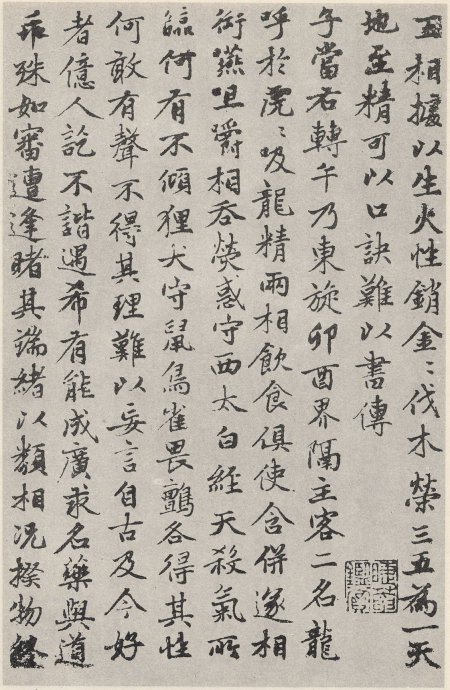 五相據以生火性銷金〻伐木榮三五為一天
地至精可以口訣難以書傳
子當右轉午乃東旋卯酉界隔主客二名龍
呼於虎〻吸龍精兩相飲食俱使含併遂相
衘燕咀嚼相吞熒惑守西太白經天殺氣所
臨何有不傾狸犬守鼠鳥雀畏鸇各得其性
何敢有聲不得其理難以妄言自古及今好
者億人訖不諧遇希有能成廣求名藥與道
乖殊如審遭逢睹其端緒以類相況揆物終